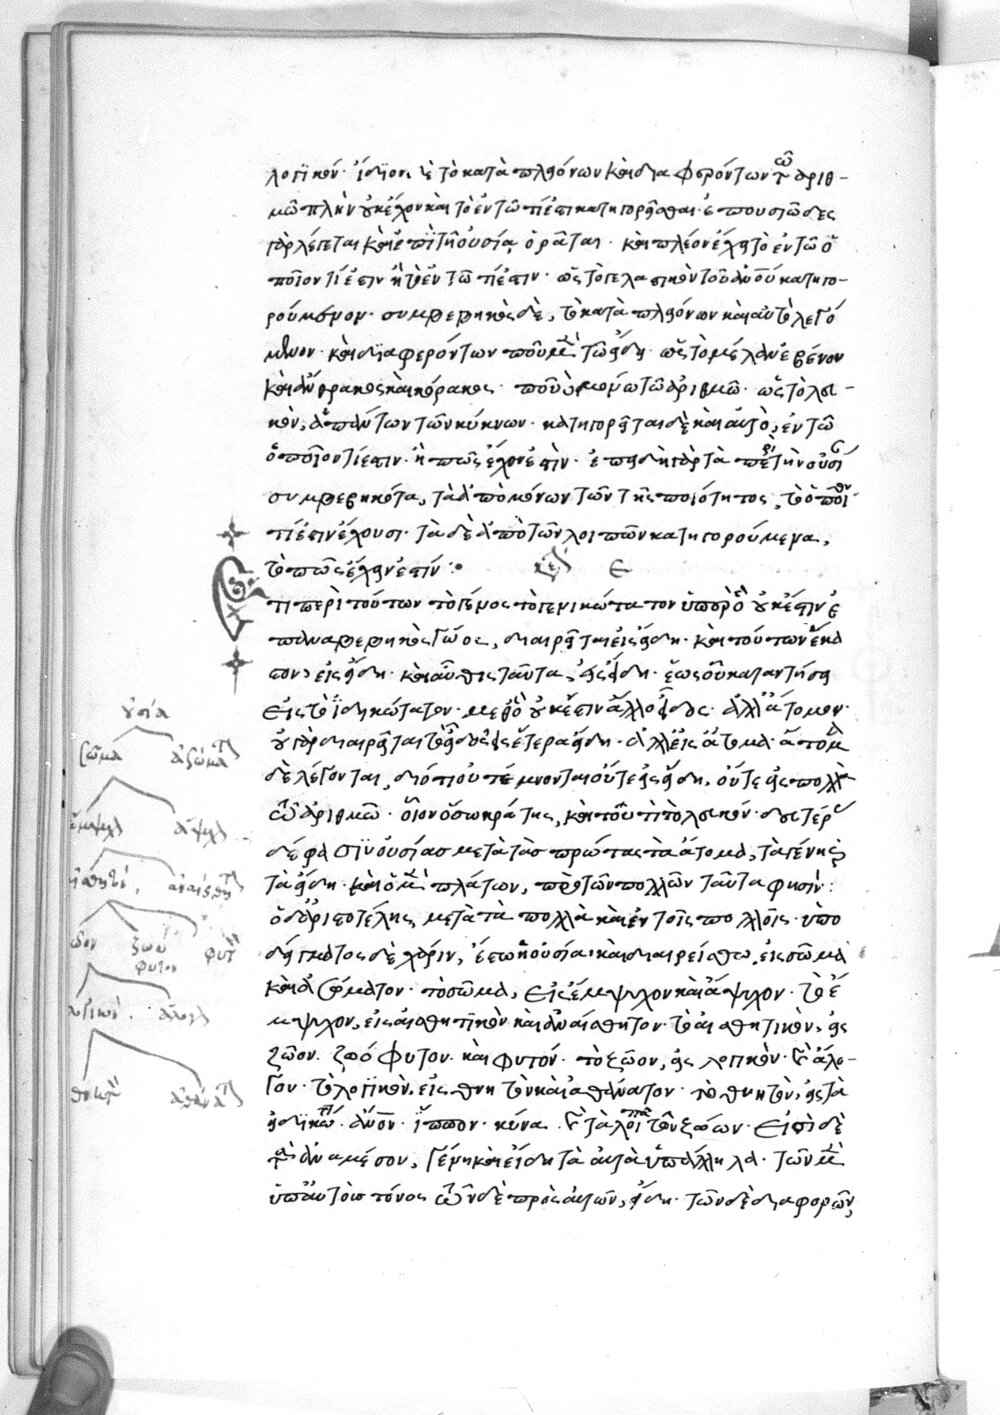 λογικόν· ἴδιον, ἢ τὸ κατὰ πλειόνων καὶ διαφερόντων τῷ ἀριθ-
μῷ πλὴν οὐκ ἔχον καὶ τὸ ἐν τῷ τί ἐστι κατηγορεῖσθαι· ἐπουσιῶδες
γὰρ λέγεται καὶ ἐπὶ τῇ οὐσίᾳ ὁρᾶται· καὶ πλέον ἔχει τὸ ἐν τῷ ὁ
ποῖον τί ἐστιν ἢ τὸ ἐν τῷ τί ἐστιν· ὡς τὸ γελαστικὸν τοῦ ἀνου κατηγο-
ρούμενον· συμβεβηκὸς δὲ, τὸ κατὰ πλειόνων καὶ αὐτὸ λεγό
μενον· καὶ διαφερόντων ποῦ μὲν τῷ εἴδει· ὡς τὸ μέλαν ἐβένου
καὶ ἄνθρακος καὶ κόρακος· ποῦ δὲ μόνῳ τῷ ἀριθμῷ· ὡς τὸ λευ-
κὸν, ἁπάντων τῶν κύκνων· κατηγορεῖται δὲ καὶ αὐτὸ, ἐν τῷ
ὁποῖον τί ἐστιν· ἢ πῶς ἔχον ἐστὶν· ἐπειδὴ γὰρ τὰ περὶ τὴν οὐσί
συμβεβηκότα, τὰ ἀπὸ μόνων τῶν τῆς ποιότητος, τὸ ὁποῖον
τί ἐστιν ἔχουσι· τὰ δὲ ἀπὸ τῶν λοιπῶν κατηγορούμενα,
τὸ πῶς ἔχειν ἐστίν:
κεφ ε
Ἔτι περὶ τούτων τὸ γένος τὸ γενικώτατον ὑπὲρ ὃ οὐκ ἔστιν ἐ
παναβεβηκὸς γένος, διαιρεῖται εἰς εἴδη· καὶ τούτων ἕκα
στον, εἰς εἴδη· καὶ αὖθις ταῦτα, εἰς εἴδη· ἕως οὗ καταντήσῃ
εἰς τὸ ἰδικώτατον· μεθ' ὃ οὐκ ἔστιν ἄλλο εἶδος· ἀλλ' ἄτομον·
οὐ γὰρ διαιρεῖται τὸ εἶδος εἰς ἕτερα εἴδη· ἀλλ' εἰς ἄτομα· ἄτομα
δὲ λέγονται, διότι οὐ τέμνονται οὔτε εἰς εἴδη, οὔτε εἰς πολλὰ
τῷ ἀριθμῷ· οἷον ὁ σωκράτης, καὶ τουτὶ τὸ λευκόν· δευτέρας
δέ φασιν οὐσίας μετὰ τὰς πρώτας τὰ ἄτομα, τὰ γένη καὶ
τὰ εἴδη· καὶ ὁ μὲν πλάτων, πρὸ τῶν πολλῶν ταῦτα φησίν:
ὁ δ' ἀριστοτέλης μετὰ τὰ πολλὰ καὶ ἐν τοῖς πολλοῖς· ὑπο
δείγματος δὲ χάριν, ἔστω ἡ οὐσία· καὶ διαιρείσθω, εἰς σῶμα
καὶ ἀσώματον· τὸ σῶμα, εἰς ἔμψυχον καὶ ἄψυχον· τὸ ἔ
μψυχον, εἰς αἰσθητικὸν καὶ ἀναίσθητον· τὸ αἰσθητικὸν, εἰς
ζῶον· ζωόφυτον· καὶ φυτόν· τὸ ζῶον, εἰς λογικὸν καὶ ἄλο-
γον· τὸ λογικὸν, εἰς θνητὸν καὶ ἀθάνατον· τὸ θνητὸν, εἰς τὰ
εἰδικώτατα· ἄνον· ἵππον· κύνα· καὶ τὰ λοιπὰ τῶν ζώων· εἰσὶ δὲ
τὰ ἀναμέσον, γένη καὶ εἴδη τὰ αὐτὰ ὑπάλληλα· τῶν μὲν
ὑπ' αὐτὸ γένος τῶν δὲ πρὸ αὐτῶν, εἴδη· τῶν δὲ διαφορῶν,
οὐσία
σῶμα ἀσώματ
ἔμψυχ ἄψυχ
αἰσθητικ, ἀναίσθητ
ζῶον ζωό
φυτον φυτ
λογικόν· ἄλογ
θνητ ἀθάνατ